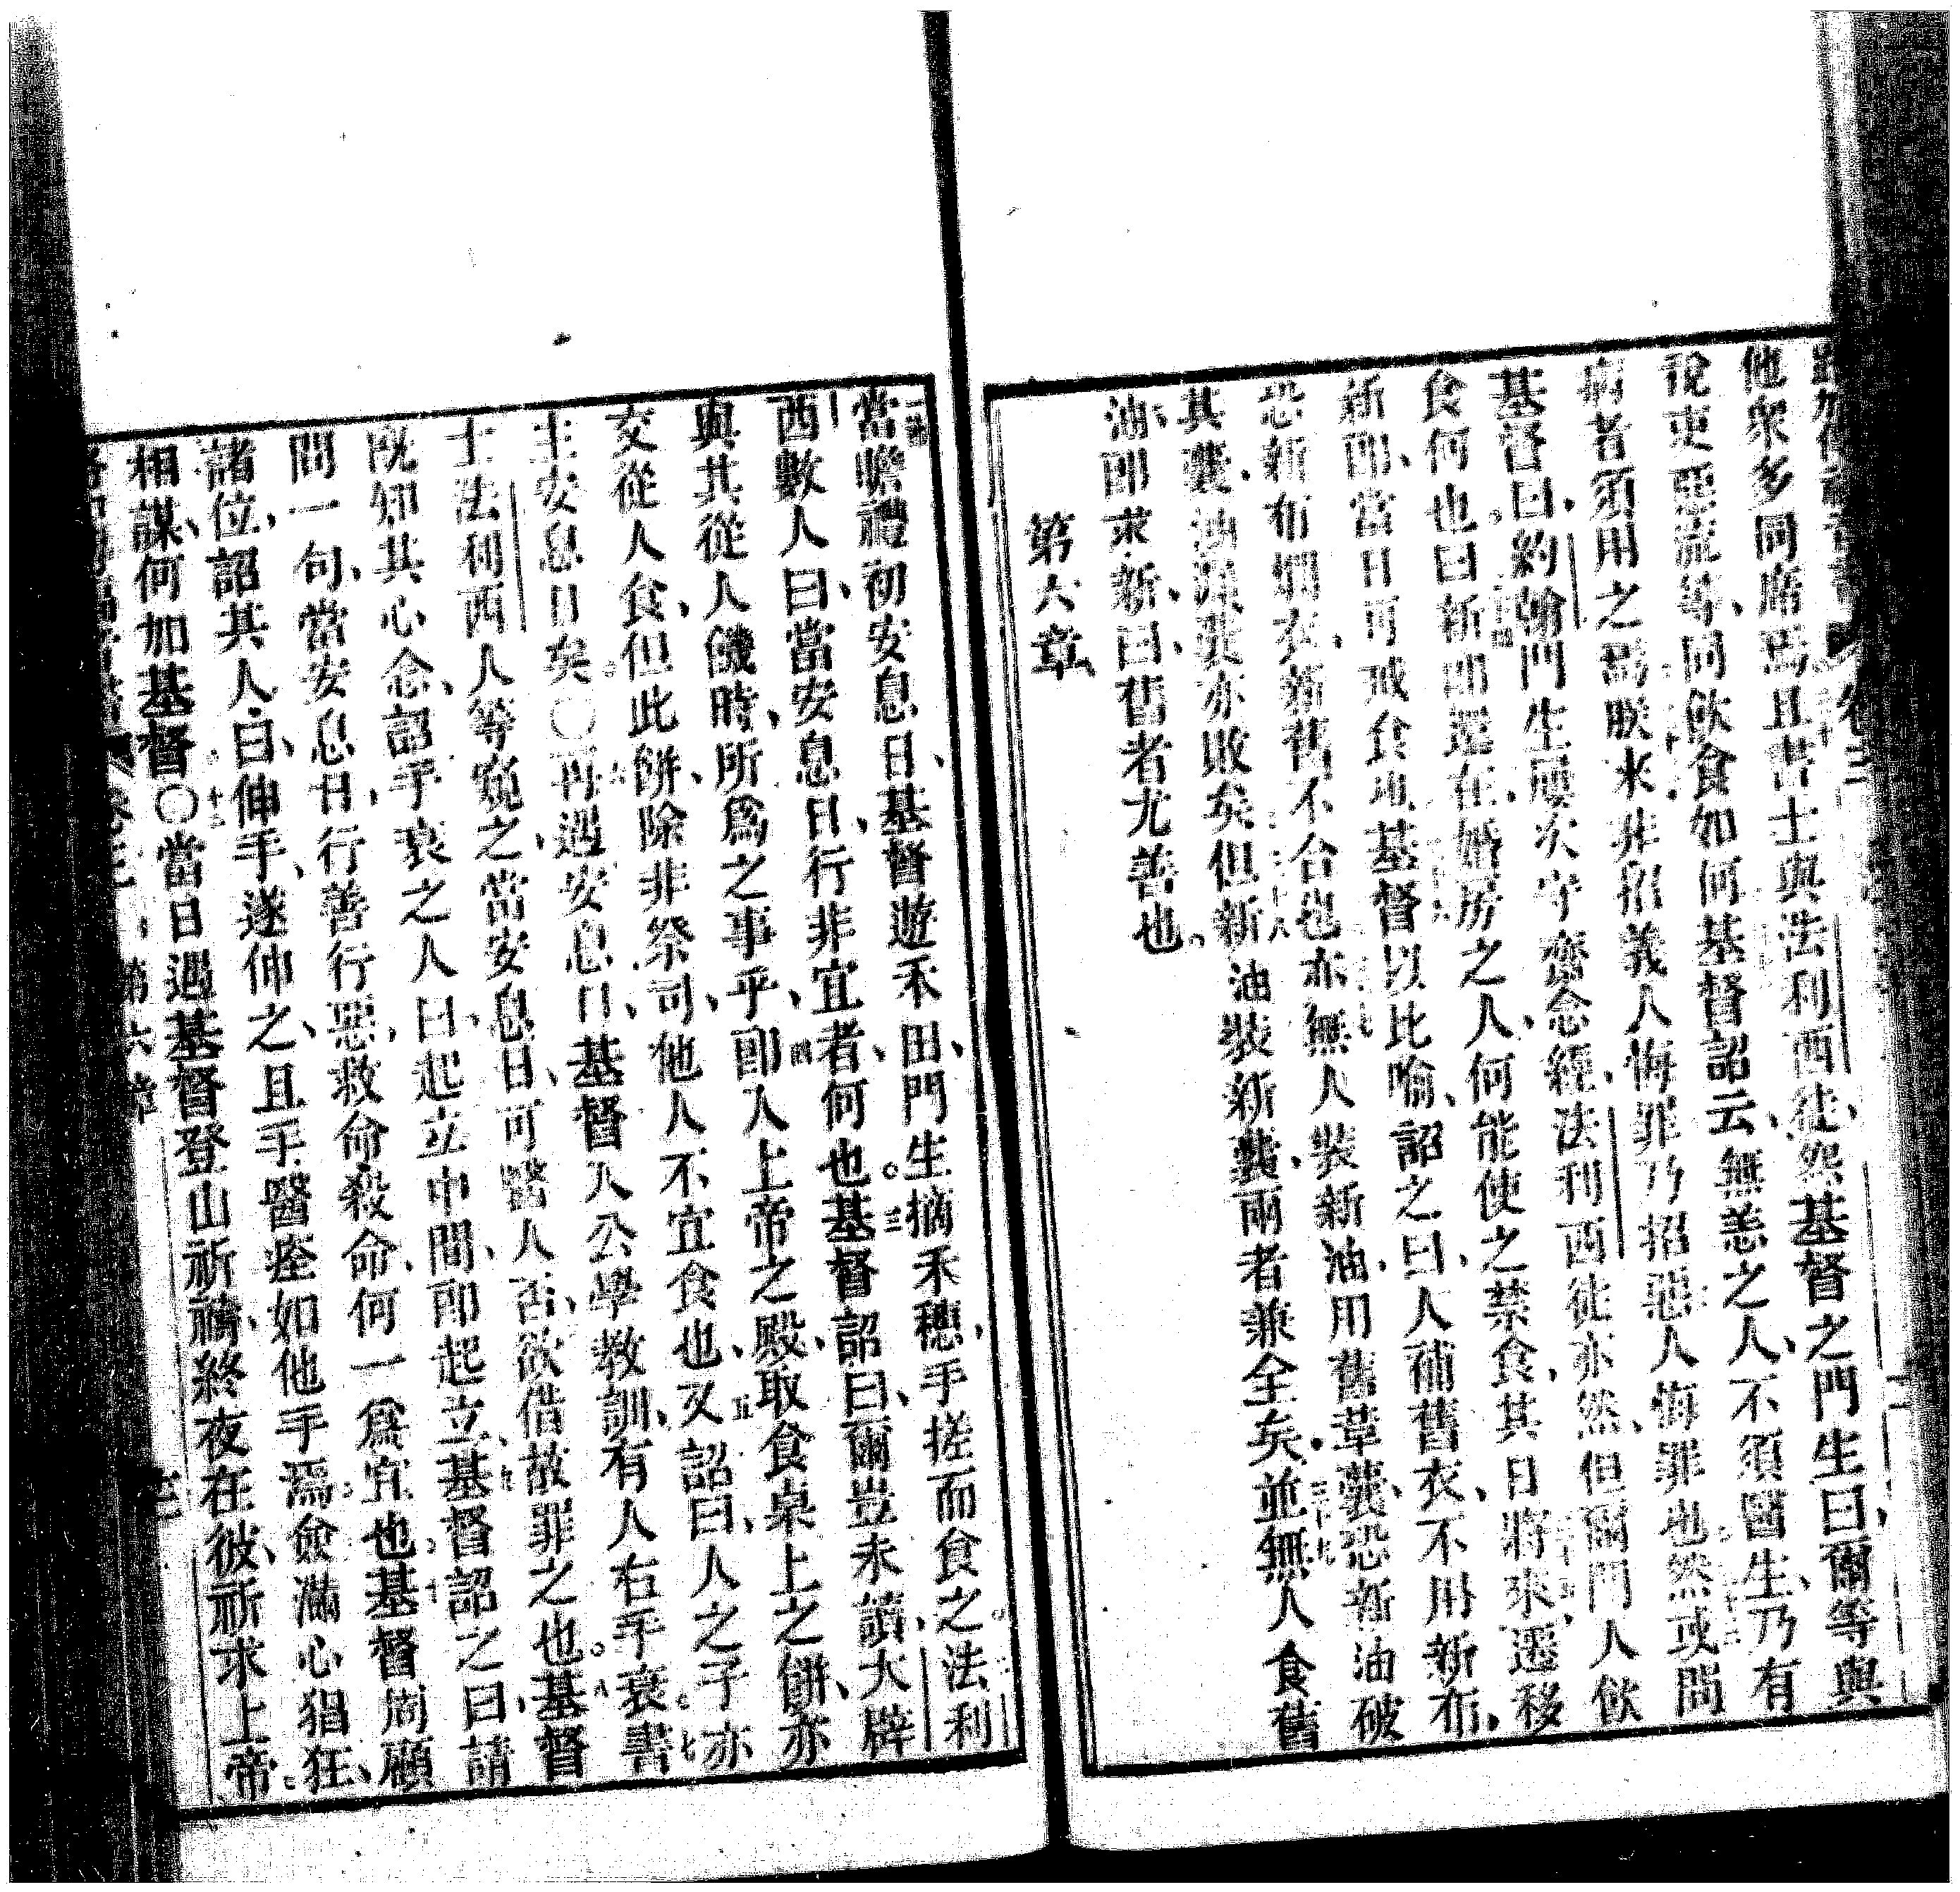 他衆多同席焉且書士與法利西徒怨基督之門生曰爾等與
稅吏惡流等同飲食如何基督詔云無恙之人不須醫生乃有
病者須用之爲朕來非招義人悔罪乃招惡人悔罪也然或問
基督曰約翰門生屢次守齋念經法利西徒亦然但爾門人飲
食何也曰新郎還在婚房之人何能使之禁食其日將來還移
新郎當日可戒食也基督以比喻詔之曰人補舊衣不用新布
恐新布惘衣新舊不合也亦無人裝新油用舊革囊恐新油破
其囊油洩囊亦敗矣但新油裝新囊兩者兼全矣並無人食舊
油卽求新曰舊者尤善也
第六章
當瞻禮初安息日基督遊禾田門生摘禾穗手搓而食之法利
西數人曰當安息日行非宜者何也基督詔曰爾豈未讀大辟
與其從人饑時所爲之事乎卽入上帝之殿取食桌上之餅亦
交從人食但此餅除非祭司他人不宜食也又詔曰人之子亦
主安息日矣〇再遇安息日基督入公學教訓有人右手衰書
士法利西人等窺之當安息日可醫人否欲借故罪之也基督
旣知其心念詔手衰之人曰起立中間卽起立基督詔之曰請
問一句當安息日行善行惡救命殺命何一爲宜也基督周顧
諸位詔其人曰伸手遂伸之且手醫痊如他手焉僉滿心猖狂
相謀何加基督〇當日遇基督登山祈禱終夜在彼祈求上帝